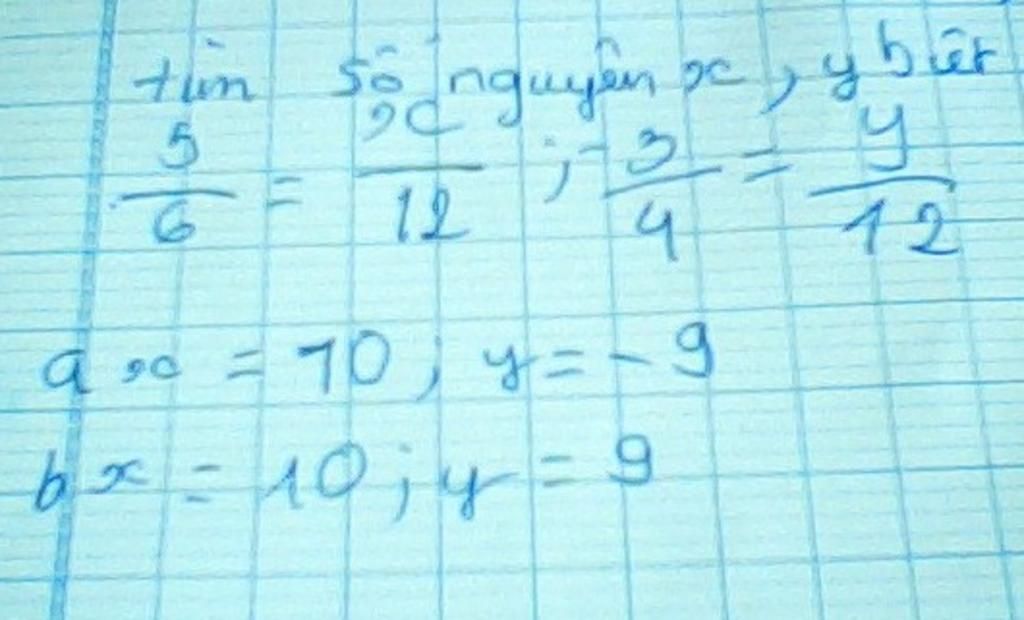 tìm số nguyên x, y biết
5/6 = x/12 ; -3/4 = y/12
a x = 10; y = -9
b x = 10; y = 9